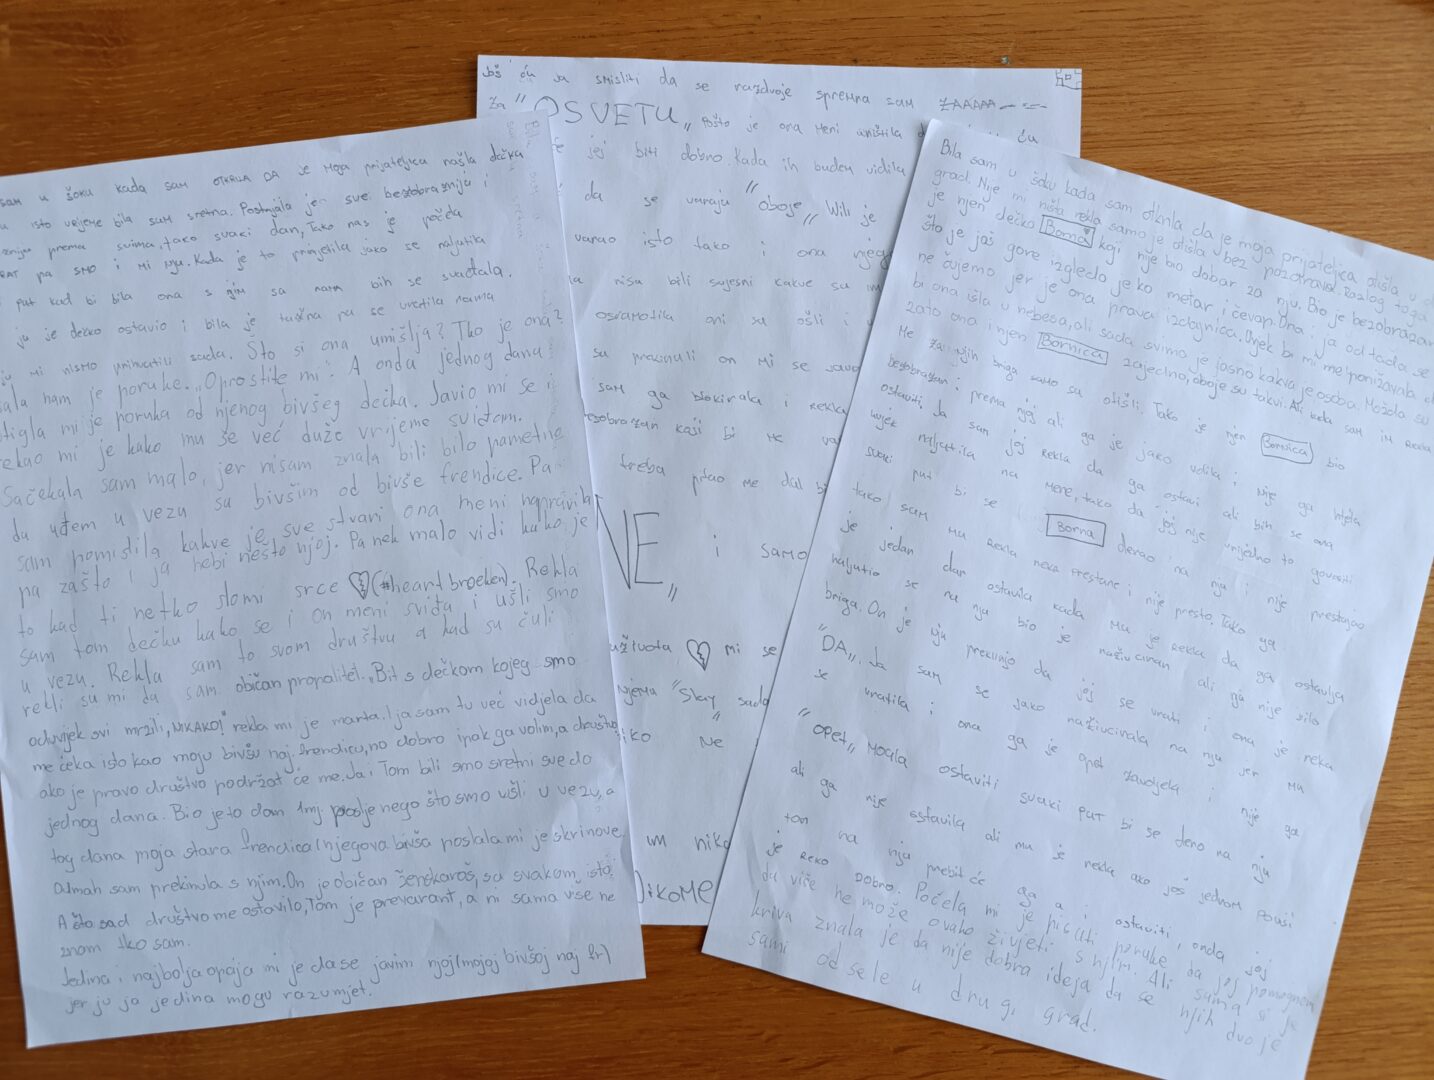 sam u šoku kada sam OTKRILA DA je Moja prijateljica našla dečka
u isto vrijeme bila sam sretna. Postajala je sve bezobraznija i
prema svima, tako svaki dan, Tako nas je počela
pa SMO i Mi nju. Kada je to primjetila jako se naljutila
put kad bi bila ona s njim sa nama bih se svađala.
ju je dečko ostavio i bila je tužna pa se vratila nama
mi nismo primatili sada. Što si ona umišlja? Tko je ona?
nam je poruke. „Oprostite mi". A onda jednog dana
stigla mi je poruka od njenog bivšeg dečka. Javio mi se i
rekao mi je kako mu se već duže vrijeme sviđam.
Sačekala sam malo, jer nisam znala bili bilo pametne
da uđem u vezu sa bivšim od bivše frendice. Pa
sam pomislila kakve je sve stvari ona meni napravila
pa zašto i ja nebi nešto njoj. Pa nek malo vidi kako je
to kad ti netko slomi srce (#heart broeken). Rekla
sam tom dečku kako se i on meni sviđa i ušli smo
u vezu. Rekla sam to svom društvu a kad su čuli
rekli su mi da sam običan propalitet. „Bit s dečkom kojeg smo
oduvijek svi mrzili, NIKAKO!" rekla mi je marta. I ja sam tu već vidjela da
me čeka isto kao moju bivšu naj. frendicu, no dobro ipak ga volim, a društvo
ako je pravo društvo podržat će me. Ja i Tom bili smo sretni sve do
jednog dana. Bio je to dan 1mj poslje nego što smo ušli u vezu, a
tog dana moja stara frendica (njegova bivša poslala mi je skrinove.
Odmah sam prekinula s njim. On je običan ženskaroš, sa svakom isto
A što sad društvo me ostavilo, Tom je prevarant, a ni sama više ne
znam tko sam.
Jedina i najbolja opcija mi je da se javim njoj (mojoj bivšoj naj fr)
jer ju ja jedina mogu razumjet.
Još ću ja smisliti da se razdvoje spremna sam ZAAAAA
Za "OSVETU„ Pošto je ona Meni uništila
je joj biti dobro kada ih buden vidila
da se varaju "oboje„ Wili je
varao isto tako i ona njega
nisu bili svjesni kakve su
osramotila oni su ošli i
su prekinuli on Mi se
sam ga blokirala i Rekla
bezobrazan koji bi Me
treba pitao Me dal bi
NE„ i samo
Mi se
njima "Slay sada
"
ne
um
Bila sam u šoku kada sam otkrila da je moja prijateljica otišla u
grad. Nije mi ništa rekla samo je otišla bez pozdrava. Razlog toga
je njen dečko Borna koji nije bio dobar za nju. Bio je bezobrazan
što je još gore izgledo je ko metar i čevap. Ona i ja od tada se
ne čujemo jer je ona prava izdajnica. Uvjek bi mi me ponižavala
bi ona išla u nebesa, ali sada svimo je jasno kakva je osoba. Možda su
zato ona i njen Bornica zajedno, oboje su takvi. Ali kada sam iM Rekla
Me za njih briga samo su otišli. Tako je njen Bornica bio
bezobrazan i prema njoj ali ga je jako volila i nije ga htjela
ostaviti. Ja sam joj Rekla da ga ostavi ali bih se ona
uvjek naljutila na Mene, tako da joj nije vrijedno to govoriti
svaki put bi se Borna derao na nju i nije prestajao
tako sam mu Rekla neka prestane i nije presto. Tako ga
je jedan dan ostavila kada Mu je Rekla da ga ostavlja
naljutio se na nju bio je naživciran ali ga nije bilo
briga. On je nju preklinjo da jej se vrati i ona je rekla
"DA„. Ja sam se jako naživcirala na nju jer Mu
se vratila i ona ga je opet zavoljela i nije ga
"OPET„ Mogla ostaviti svaki put bi se dero na nju
ali ga nije ostavila ali mu je rekla ako još jednom povisi
ton na nju prebit će ga a i ostaviti, onda joj
je Reko DOBRO. Počela mi je pisati poruke da joj pomognem
da više ne može ovako živjeti s njim. Ali sama si je
kriva znala je da nije dobra ideja da se njih dvoje
sami odsele u drugi grad.